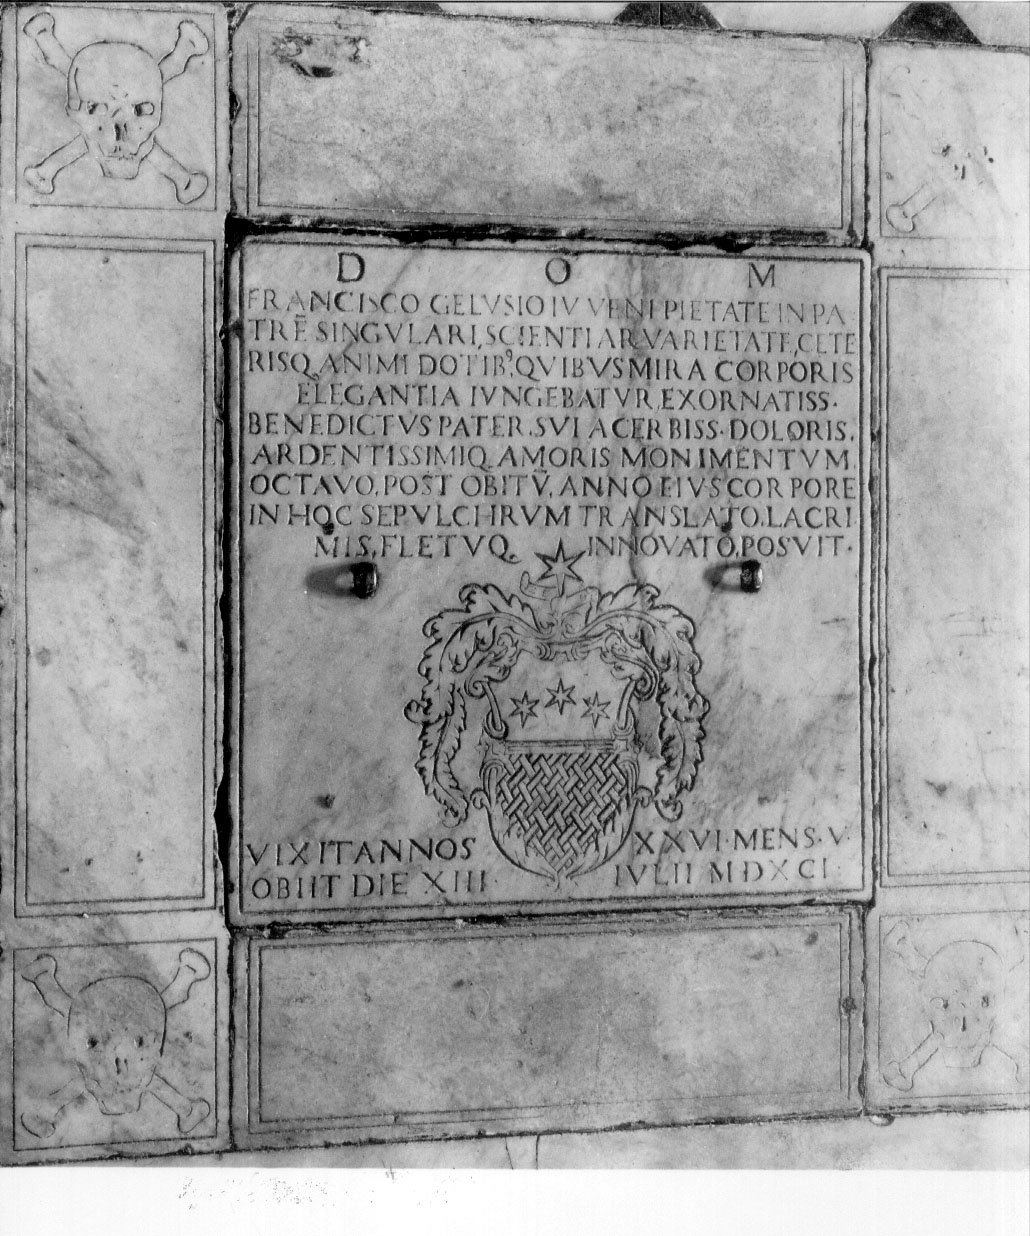 D O M
FRANCISCO GELVSIO IVVENI PIETATE IN PA
TRĒ SINGVLARI, SCIENTIAR VARIETATE, CETE
RISQ ANIMI DOTIB⁹, QVIBVS MIRA CORPORIS
ELEGANTIA IVNGEBATVR, EXORNATISS.
BENEDICTVS PATER. SVI ACERBISS. DOLORIS,
ARDENTISSIMIQ AMORIS MONIMENTVM
OCTAVO, POST OBITV̄, ANNO EIVS CORPORE
IN HOC SEPVLCHRVM TRANSLATO, LACRI
MIS, FLETVQ INNOVATO, POSVIT.
VIXIT ANNOS XXVI. MENS. V
OBIIT DIE XIII. IVLII MDXCI.